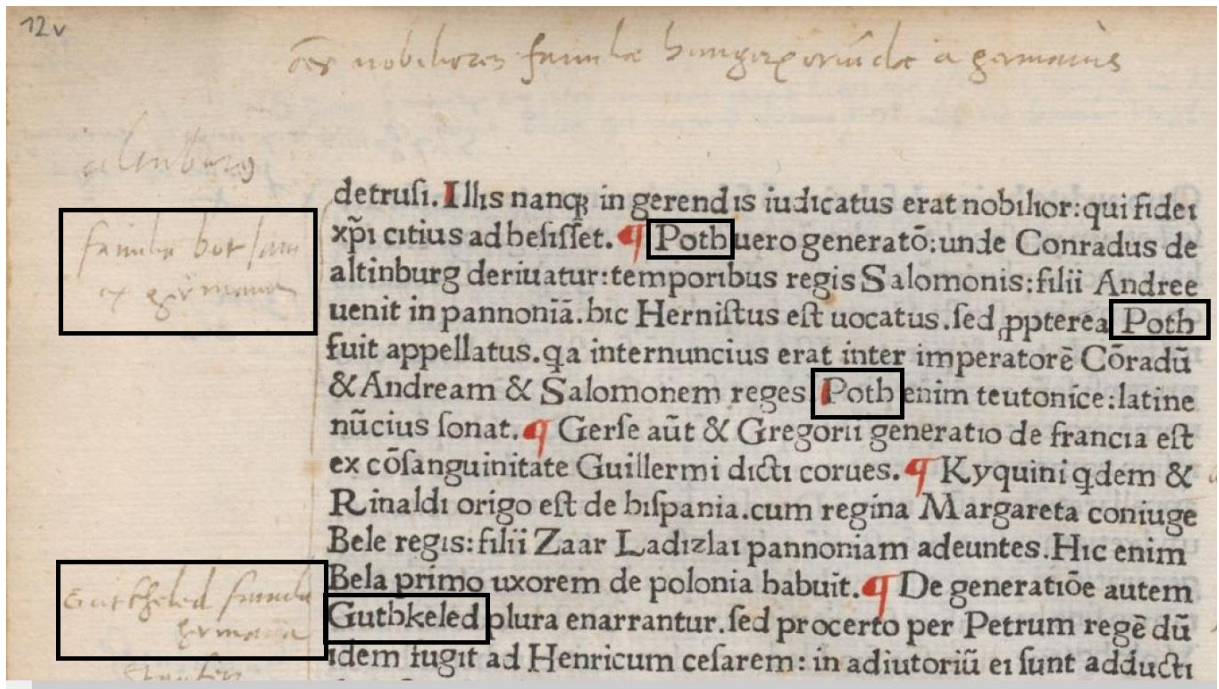 12v
oēs nobiliores familiæ hungariæ oriūdæ à germanis
altenburg
detruſi. Illis nanqꝫ in gerendis iudicatus erat nobilior: qui fidei
familia bot ſam
xp̄i citius adheſiſſet. ¶ Poth uero generatō: unde Conradus de
ex germania
altinburg deriuatur: temporibus regis Salomonis: filii Andree
uenit in pannoniā. hic Herniſtus eſt uocatus. ſed ꝓpterea Poth
fuit appellatus. qa internuncius erat inter imperatorē Cōradū
& Andream & Salomonem reges Poth enim teutonice: latine
nūcius ſonat. ¶ Gerſe aūt & Gregorii generatio de francia eſt
ex cōſanguinitate Guillermi dicti corues. ¶ Kyquini qdem &
Rinaldi origo eſt de hiſpania. cum regina Margareta coniuge
Bele regis: filii Zaar Ladizlai pannoniam adeuntes. Hic enim
Bela primo uxorem de polonia habuit. ¶ De generatiōe autem
Gutkheled familia
Guthkeled plura enarrantur. ſed procerto per Petrum regē dū
germana
idem fugit ad Henricum ceſarem: in adiutoriū ei ſunt adducti